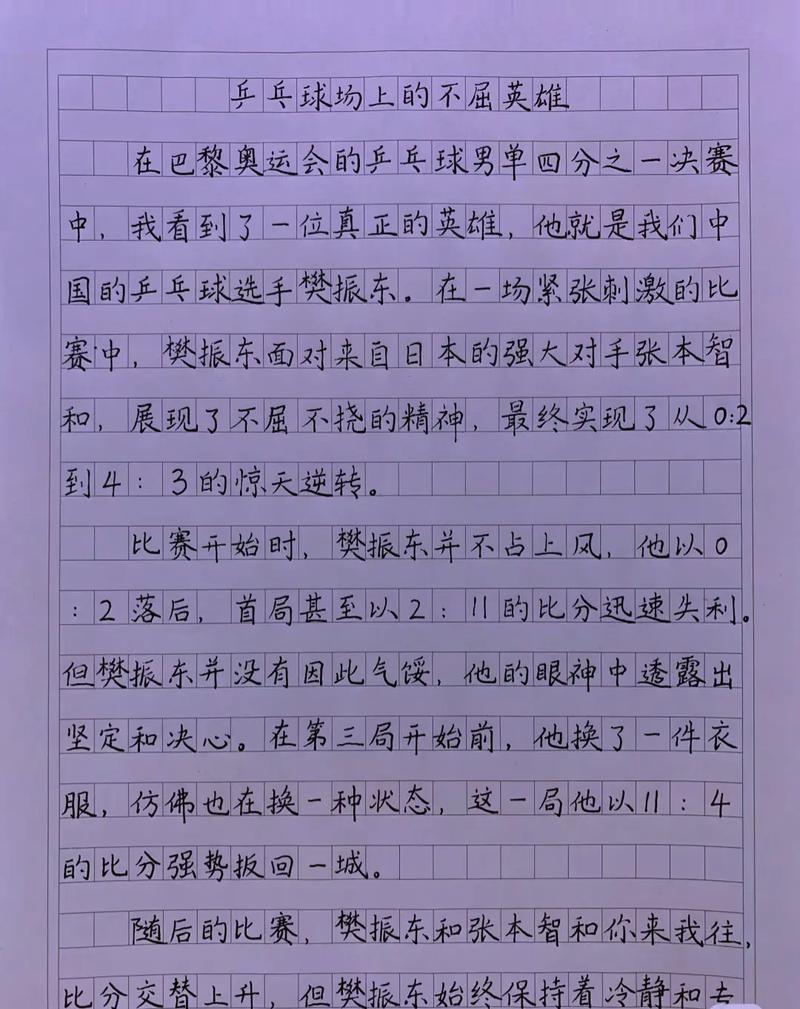 乒乓球场上的不屈英雄
在巴黎奥运会的乒乓球男单四分之一决赛
中，我看到了一位真正的英雄，他就是我们中
国的乒乓球选手樊振东。在一场紧张刺激的比
赛中，樊振东面对来自日本的强大对手张本智
和，展现了不屈不挠的精神，最终实现了从0:2
到4：3的惊天逆转。
比赛开始时，樊振东并不占上风，他以0
：2落后，首局甚至以2：11的比分迅速失利。
但樊振东并没有因此气馁，他的眼神中透露出
坚定和决心。在第三局开始前，他换了一件衣
服，仿佛也在换一种状态，这一局他以11：4
的比分强势扳回一城。
随后的比赛，樊振东和张本智和你来我往，
比分交替上升，但樊振东始终保持着冷静和专